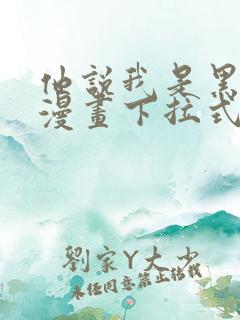 他說我是黑
漫畫下拉式
劉家Y大少
未經同意禁止轉載